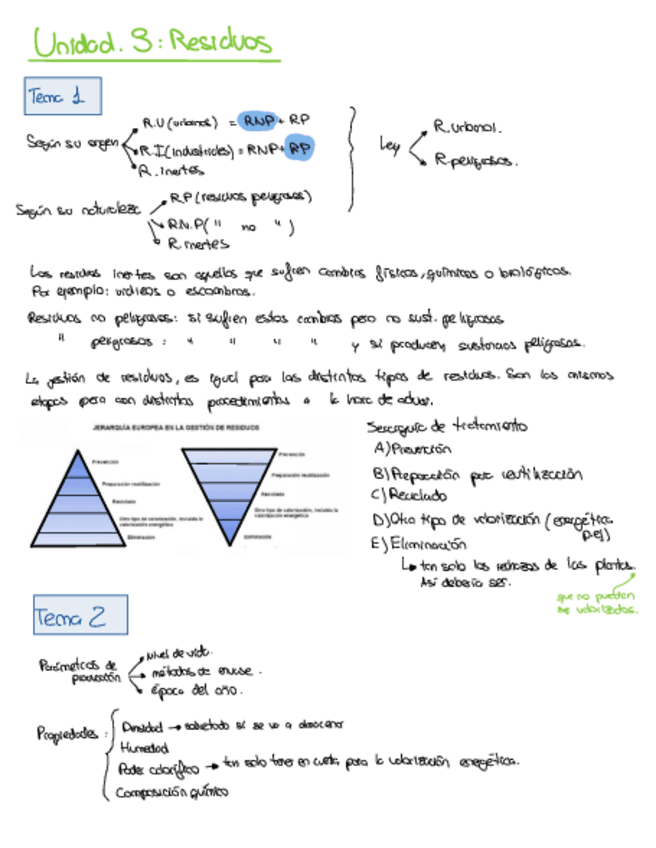 Unidad. 3: Residuos
Tema 1
Según su origen
R.U (urbanos) = RNP + RP
R.I (industriales) = RNP + RP
R. inertes
Ley
R. urbanos.
R. peligrosos.
Según su naturaleza
R.P (residuos peligrosos)
R.N.P ( " no " )
R. inertes
Los residuos inertes son aquellos que sufren cambios físicos, químicos o biológicos.
Por ejemplo: vidrieos o escombros.
Residuos no peligrosos: si sufren estos cambios pero no sust. peligrosas
" peligrosos : " " " " y si producen sustancias peligrosas.
La gestión de residuos, es igual para las distintos tipos de residuos. Son las mismas
etapas pero con distintos procedimientos a la hora de actuar.
JERARQUÍA EUROPEA EN LA GESTIÓN DE RESIDUOS
Prevención
Preparación reutilización
Reciclado
Otro tipo de valorización, incluida la
valorización energética
Eliminación
Prevención
Preparación reutilización
Reciclado
Otro tipo de valorización, incluida la
valorización energética
Eliminación
de tratamiento
A) Prevención
B) Preparación para reutilización
C) Reciclado
D) Otro tipo de valorización (energética
p.ej)
E) Eliminación
tan solo los rechazos de las plantas.
Así debería ser.
que no puedan
se valorizados.
Tema 2
Parámetros de
producción
nivel de vida.
métodos de envase.
época del año.
Propiedades :
Densidad → sobretodo si se va a almacenar
Humedad
Poder calorífico → tan solo tener en cuenta para la valorización energética.
Composición química